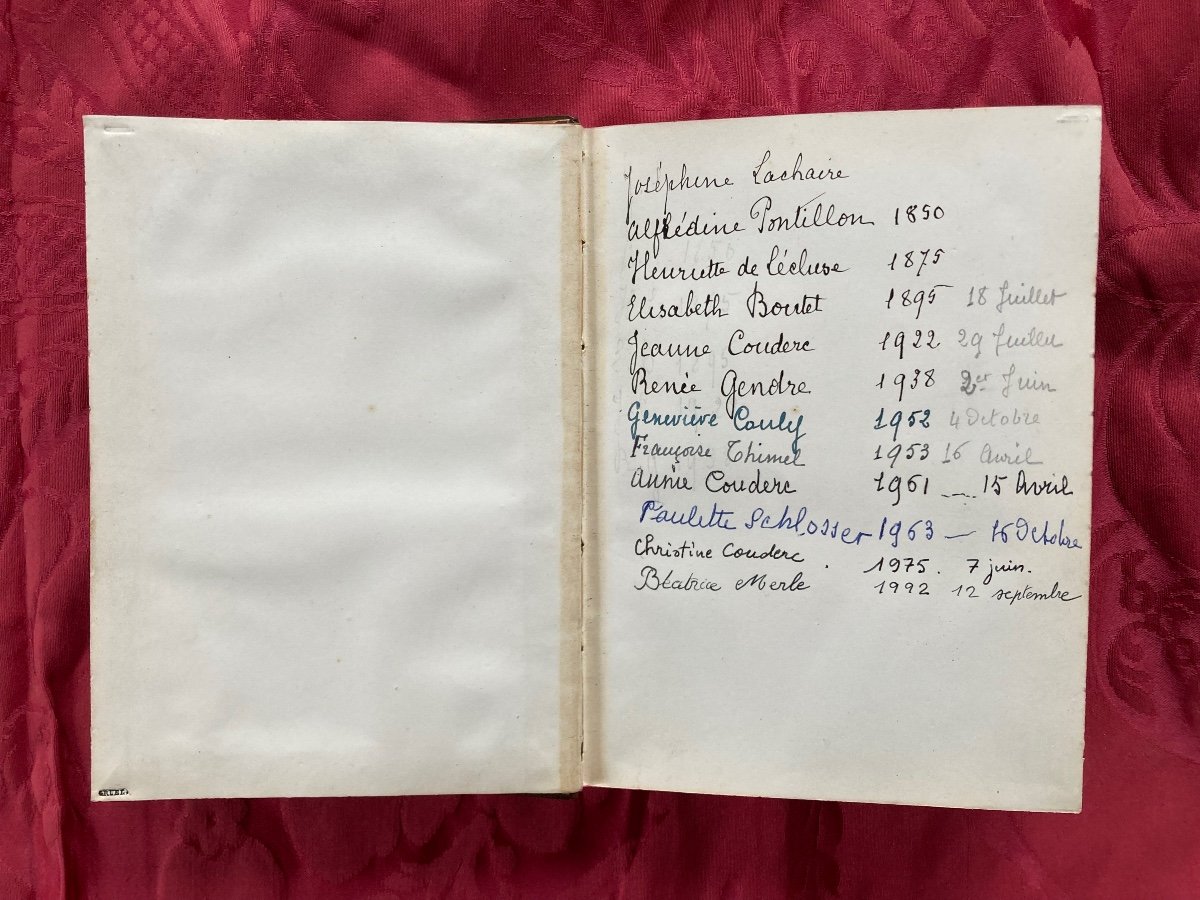 Joséphine Lachaire
Alfrédine Pontillon 1850
Henriette de Lécluse 1875
Elisabeth Boutet 1895 18 Juillet
Jeanne Couderc 1922 29 Juillet
Renée Gendre 1938 2er Juin
Geneviève Couly 1952 4 Octobre
Françoise Thimel 1953 16 Avril
Annie Couderc 1961 __ 15 Avril
Paulette Schlosser 1963 — 16 Octobre
Christine Couderc . 1975. 7 juin.
Béatrice Merle 1992 12 septembre